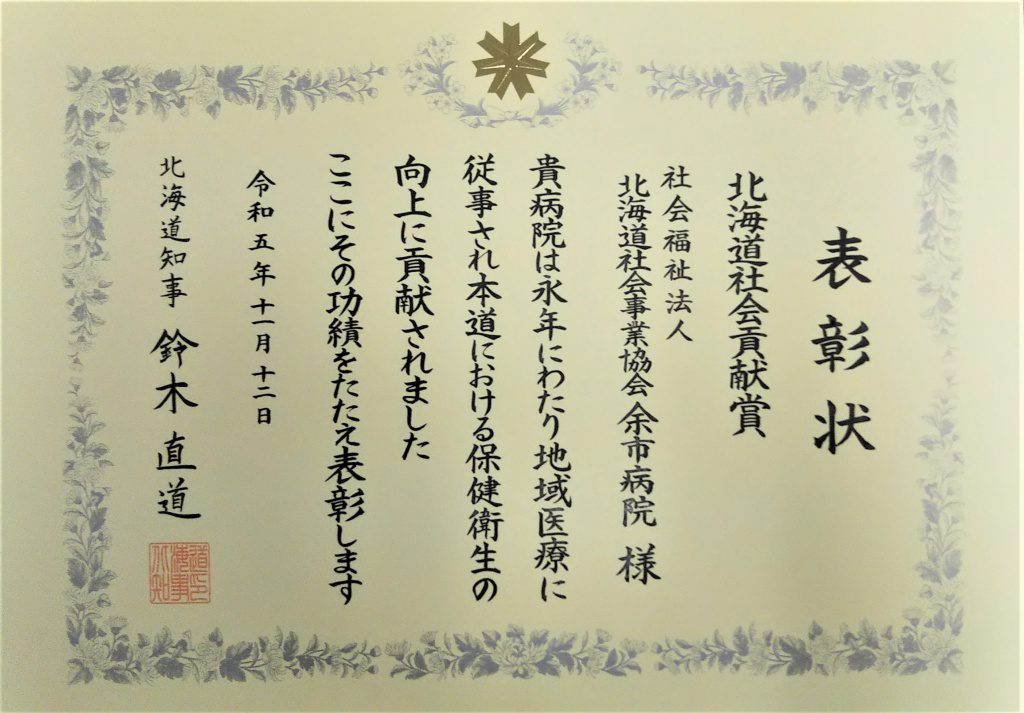 表彰状
北海道社会貢献賞
社会福祉法人
北海道社会事業協会余市病院 様
貴病院は永年にわたり地域医療に
従事され本道における保健衛生の
向上に貢献されました
ここにその功績をたたえ表彰します
令和五年十一月十二日
北海道知事 鈴木直道